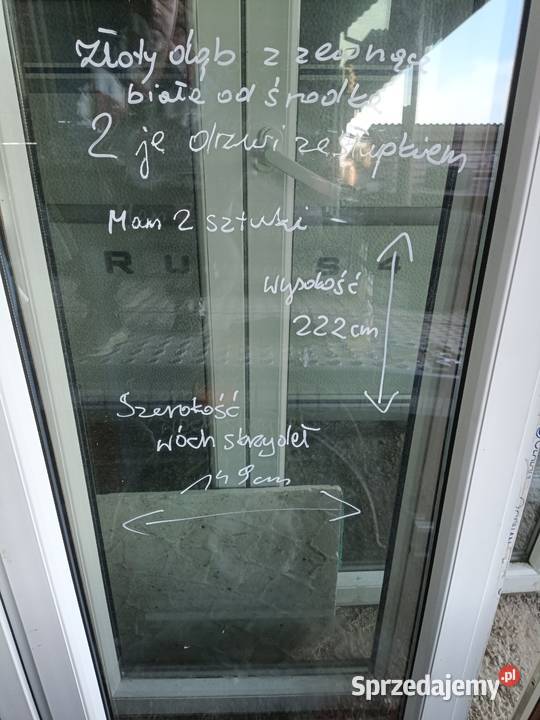 Złoty dąb z zewnącz
białe od środka
2 je drzwi ze słupkiem
Mam 2 sztuki
R U S
wysokość
222 cm
Szerokość
wóch skrzydeł
149 cm
Sprzedajemy.pl